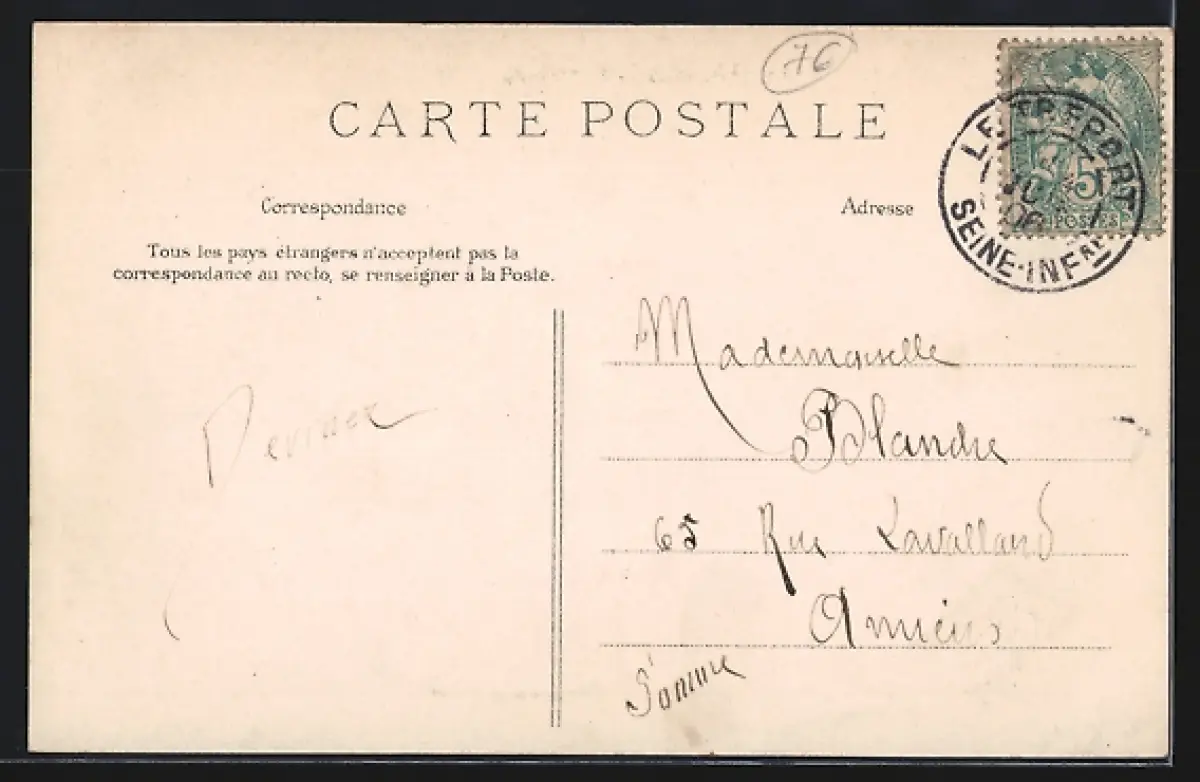 76
CARTE POSTALE
Correspondance
Adresse
Tous les pays étrangers n'acceptent pas la
correspondance au recto, se renseigner à la Poste.
LE TREPORT
06
SEINE-INFRE
5
POSTES
Mademoiselle
Blandre
65 Rue Lavalland
Amiens
Somme